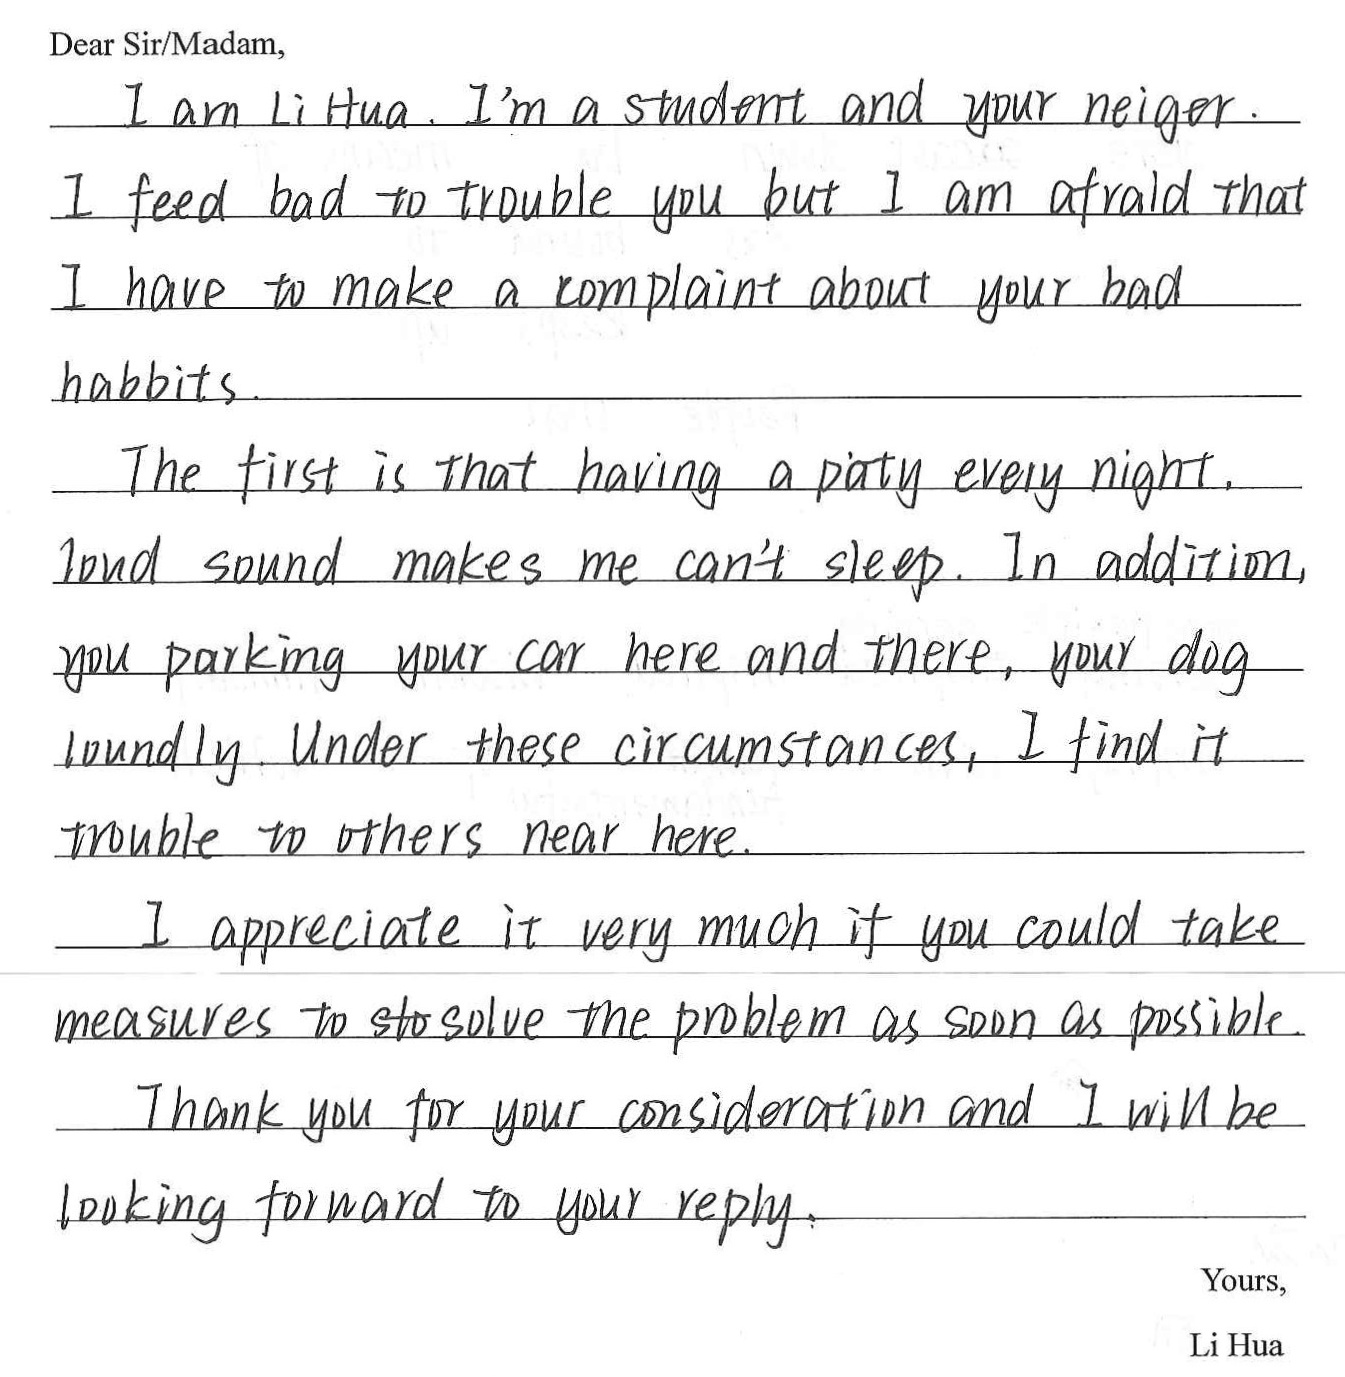 Dear Sir/Madam,
I am Li Hua. I'm a student and your neiger.
I feed bad to trouble you but I am afrald that
I have to make a complaint about your bad
habbits.
The first is that having a paty every night.
loud sound makes me can't sleep. In addition,
you parking your car here and there, your dog
loundly. Under these circumstances, I find it
trouble to others near here.
I appreciate it very much if you could take
measures to sto solve the problem as soon as possible.
Thank you for your consideration and I will be
looking forward to your reply.
Yours,
Li Hua